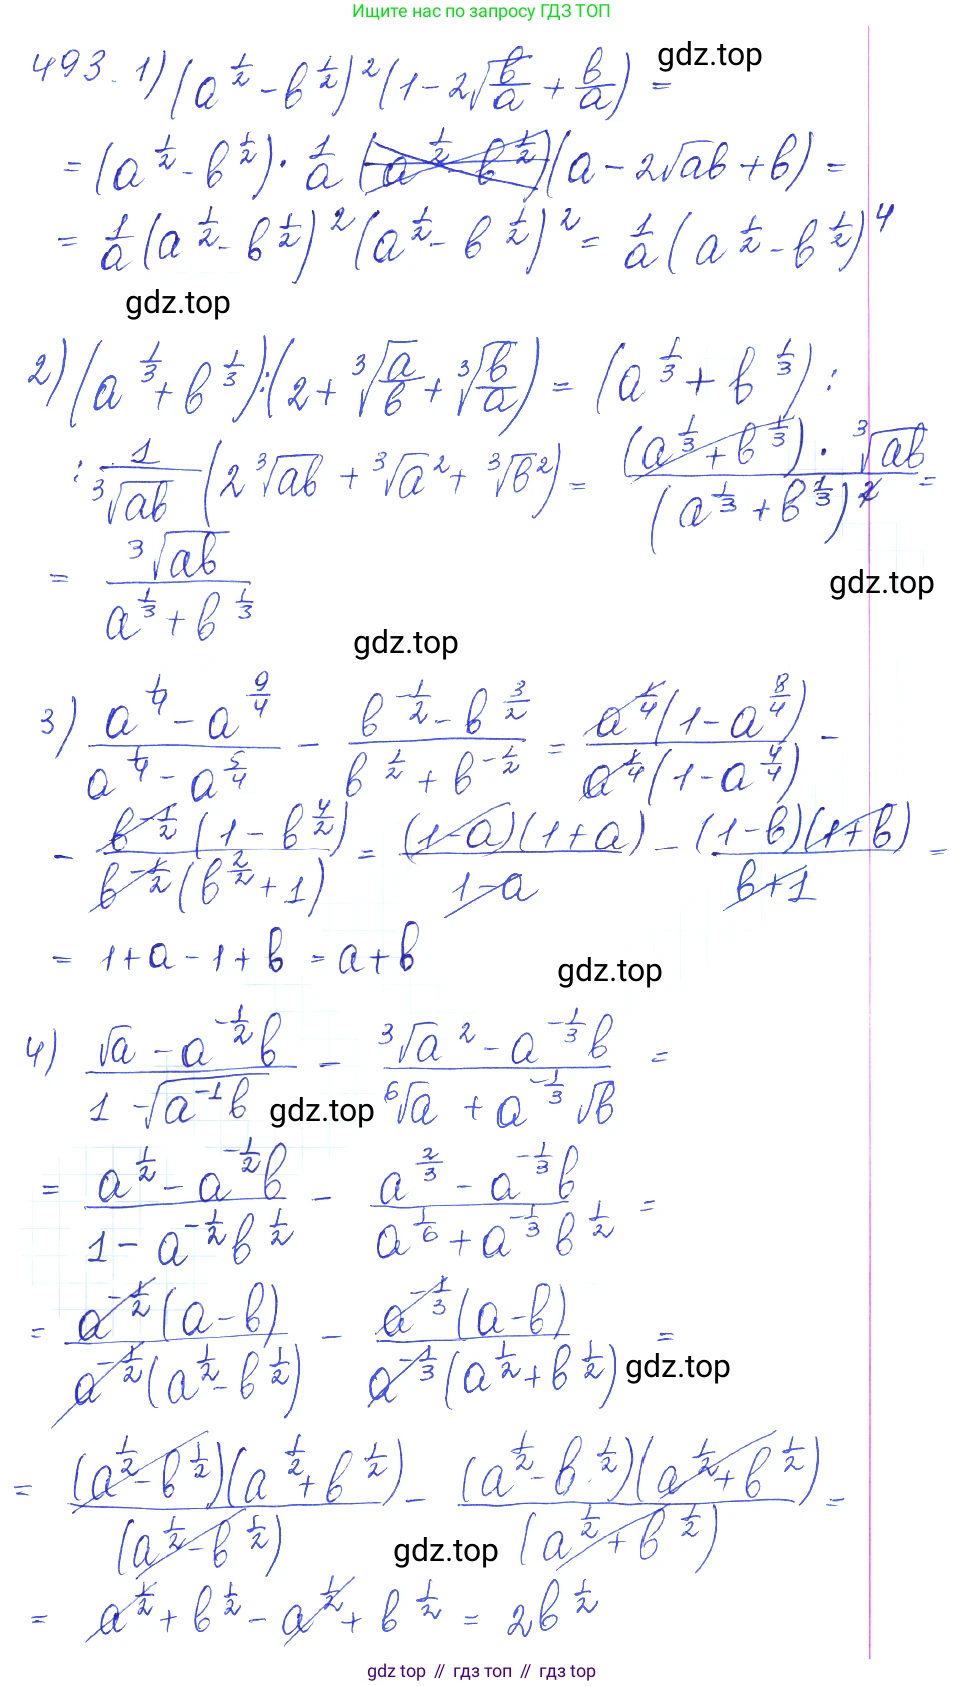 Ищите нас по запросу ГДЗ ТОП
493. 1) (a^{1/2} - b^{1/2})^2 (1 - 2√(b/a) + b/a) =
gdz.top
= (a^{1/2} - b^{1/2}) · 1/a (a^{1/2} - b^{1/2})(a - 2√ab + b) =
= 1/a (a^{1/2} - b^{1/2})^2 (a^{1/2} - b^{1/2})^2 = 1/a (a^{1/2} - b^{1/2})^4
gdz.top
2) (a^{1/3} + b^{1/3}) : (2 + ∛(a/b) + ∛(b/a)) = (a^{1/3} + b^{1/3}) :
: 1/∛ab (2∛ab + ∛a^2 + ∛b^2) = (a^{1/3} + b^{1/3}) · ∛ab / (a^{1/3} + b^{1/3})^2 =
= ∛ab / (a^{1/3} + b^{1/3})
gdz.top
gdz.top
3) (a^{1/4} - a^{9/4}) / (a^{1/4} - a^{5/4}) - (b^{-1/2} - b^{3/2}) / (b^{1/2} + b^{-1/2}) = a^{1/4}(1 - a^{8/4}) / a^{1/4}(1 - a^{4/4}) -
- b^{-1/2}(1 - b^{4/2}) / b^{-1/2}(b^{2/2} + 1) = (1-a)(1+a) / 1-a - (1-b)(1+b) / b+1 =
= 1+a-1+b = a+b
gdz.top
4) (√a - a^{-1/2}b) / (1 - √(a^{-1}b)) - (∛a^2 - a^{-1/3}b) / (⁶√a + a^{-1/3}√b) =
gdz.top
= (a^{1/2} - a^{-1/2}b) / (1 - a^{-1/2}b^{1/2}) - (a^{2/3} - a^{-1/3}b) / (a^{1/6} + a^{-1/3}b^{1/2}) =
= a^{-1/2}(a-b) / a^{-1/2}(a^{1/2} - b^{1/2}) - a^{-1/3}(a-b) / a^{-1/3}(a^{1/2} + b^{1/2}) =
gdz.top
= (a^{1/2} - b^{1/2})(a^{1/2} + b^{1/2}) / (a^{1/2} - b^{1/2}) - (a^{1/2} - b^{1/2})(a^{1/2} + b^{1/2}) / (a^{1/2} + b^{1/2}) =
gdz.top
= a^{1/2} + b^{1/2} - a^{1/2} + b^{1/2} = 2b^{1/2}
gdz top // гдз топ // gdz top